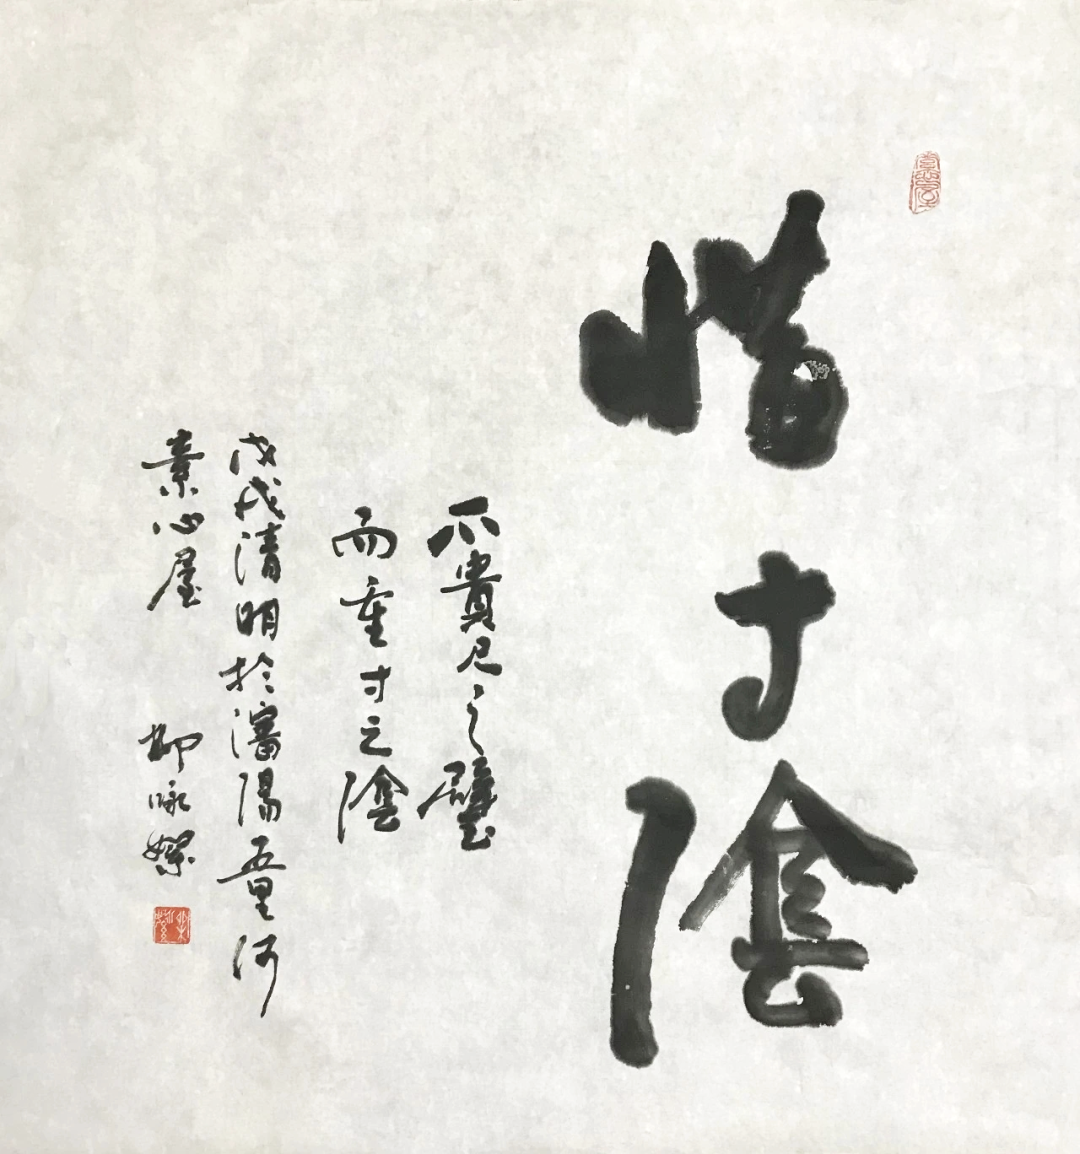 惜寸陰
不貴尺之璧
而重寸之陰
戊戌清明於瀋陽五里河
素心屋 柳咏絮